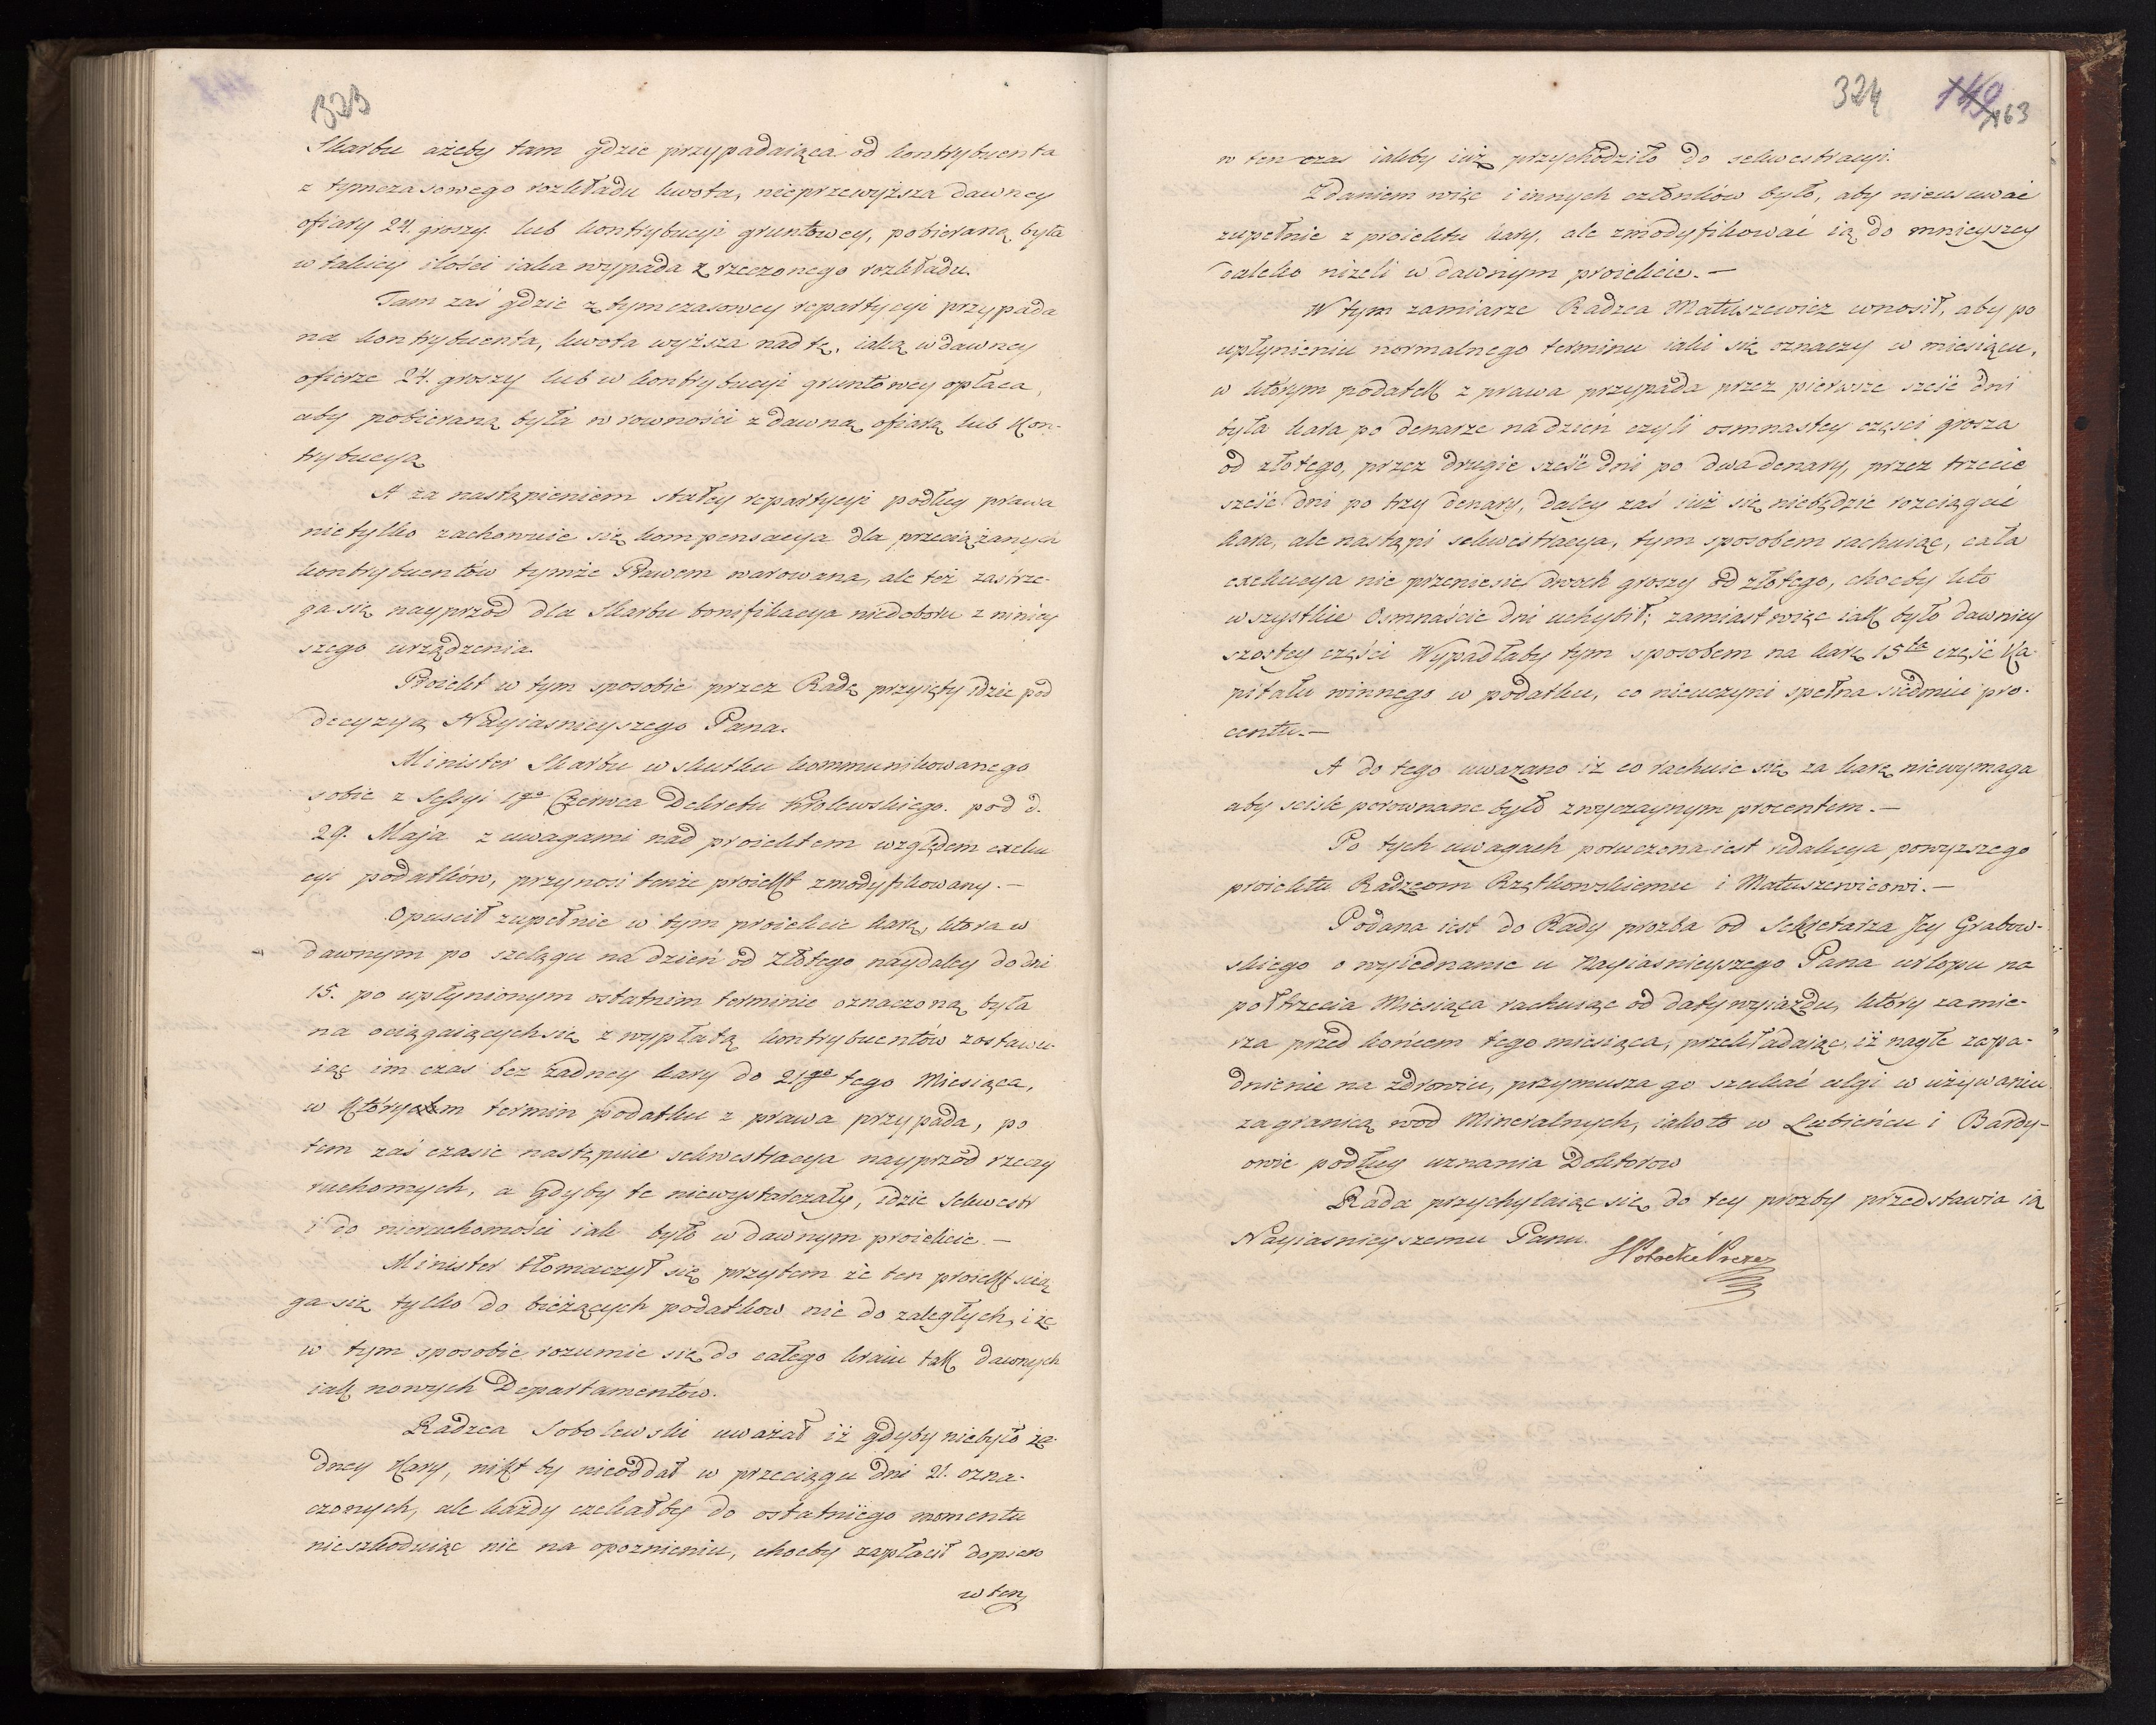 323
Skarbu ażeby tam gdzie przypadaiąca od kontrybuenta
z tymczasowego rozkładu kwota, nieprzewyższa dawney
ofiary 24. groszy lub kontrybucyi gruntowey, pobieraną była
w takiey ilości iaka wypada z rzeczonego rozkładu.
Tam zaś gdzie z tymczasowey repartycyi przypada
na kontrybuenta, kwota wyższa nad tę, iaką w dawney
ofierze 24. groszy lub w kontrybucyi gruntowey opłaca,
aby pobieraną była w rowności z dawną ofiarą lub Kon-
trybucyą
A za nastąpieniem stałey repartycyi podług prawa
nietylko zachowuie się kompensacya dla przeciążanych
kontrybuentów tymże Prawem warowana, ale też zastrze-
ga się nayprzod dla Skarbu bonifikacya niedoboru z niniey
szego urządzenia.
Proiekt w tym sposobie przez Radę przyięty idzie pod
decyzyą Nayiasnieyszego Pana.
Minister Skarbu w skutku kommunikowanego
sobie z Sessyi 1go Czerwca Dekretu Krolewskiego. pod d.
29. Maja z uwagami nad proiektem względem exeku
cyi podatków, przynosi tenże proiekt zmodyfikowany.—
Opuscił zupełnie w tym proiekcie karę, ktora w
dawnym po szelągu na dzień od Złotego naydaley do dni
15. po upłynionym ostatnim terminie oznaczoną była
na ociągaiących się z wypłatą kontrybuentów zostawu-
iąc im czas bez żadney kary do 21go tego Miesiąca,
w którym termin podatku z prawa przypada, po
tem zaś czasie następuie sekwestracya nayprzód rzeczy
ruchomych, a gdyby te niewystarczały, idzie Sekwestr
i do nieruchomości iak było w dawnym proiekcie.—
Minister tłomaczył się przytem że ten proiekt ścią
ga się tylko do bieżących podatkow nie do zaległych, i że
w tym sposobie rozumie się do całego kraiu tak dawnych
iak nowych Departamentów.
Radzca Sobolewski uważał iż gdyby niebyło ża-
dney Kary, nikt by nieoddał w przeciągu dni 21. ozna-
czonych, ale każdy czekałby do ostatniego momentu
nieszkoduiąc nic na opoznieniu, choćby zapłacił dopiero
w ten
324 149 163
w ten czas iakby iuż przychodziło do sekwestracyi.
Zdaniem więc i innych członków było, aby nieusuwać
zupełnie z proiektu kary, ale zmodyfikować ią do mnieyszey
daleko niżeli w dawnym proiekcie.—
W tym zamiarze Radzca Matuszewicz wnosił, aby po
upłynieniu normalnego terminu iaki się oznaczy w miesiącu,
w którym podatek z prawa przypada przez pierwsze sześć dni
była kara po denarze na dzień czyli osmnastey częsci grosza
od złotego, przez drugie sześć dni po dwa denary, przez trzecie
sześć dni po trzy denary, daley zaś iuż się niebędzie rozciągać
kara, ale nastąpi sekwestracya, tym sposobem rachuiąc, cała
exekucya nie przeniesie dwoch groszy od złotego, choćby kto
wszystkie Osmnaście dni uchybił; zamiast więc iak było dawniey
szostey części Wypadłaby tym sposobem na karę 15ta część Ka-
pitału winnego w podatku, co nieuczyni spełna siedmiu pro-
centu.—
A do tego uważano iż co rachuie się za karę niewymaga
aby sciśle porownane było zwyczaynym procentem.—
Po tych uwagach poruczona iest redakcya powyzszego
proiektu Radzcom Rzętkowskiemu i Matuszewicowi.—
Podana iest do Rady prozba od Sekretarza Jey Grabow-
skiego o wyiednanie u Nayiasnieyszego Pana urlopu na
połtrzecia Miesiąca rachuiąc od daty wyiazdu, który zamie-
rza przed końcem tego miesiąca, przekładaiąc iż nagłe zapa-
dnienie na zdrowiu, przymusza go szukać ulgi w używaniu
zagranicą wod Mineralnych, iakoto w Lubieńcu i Bardy-
owie podług uznania Doktorow
Rada przychylaiąc się do tey prozby przedstawia ią
Nayiasnieyszemu Panu.
Potocki Prezes